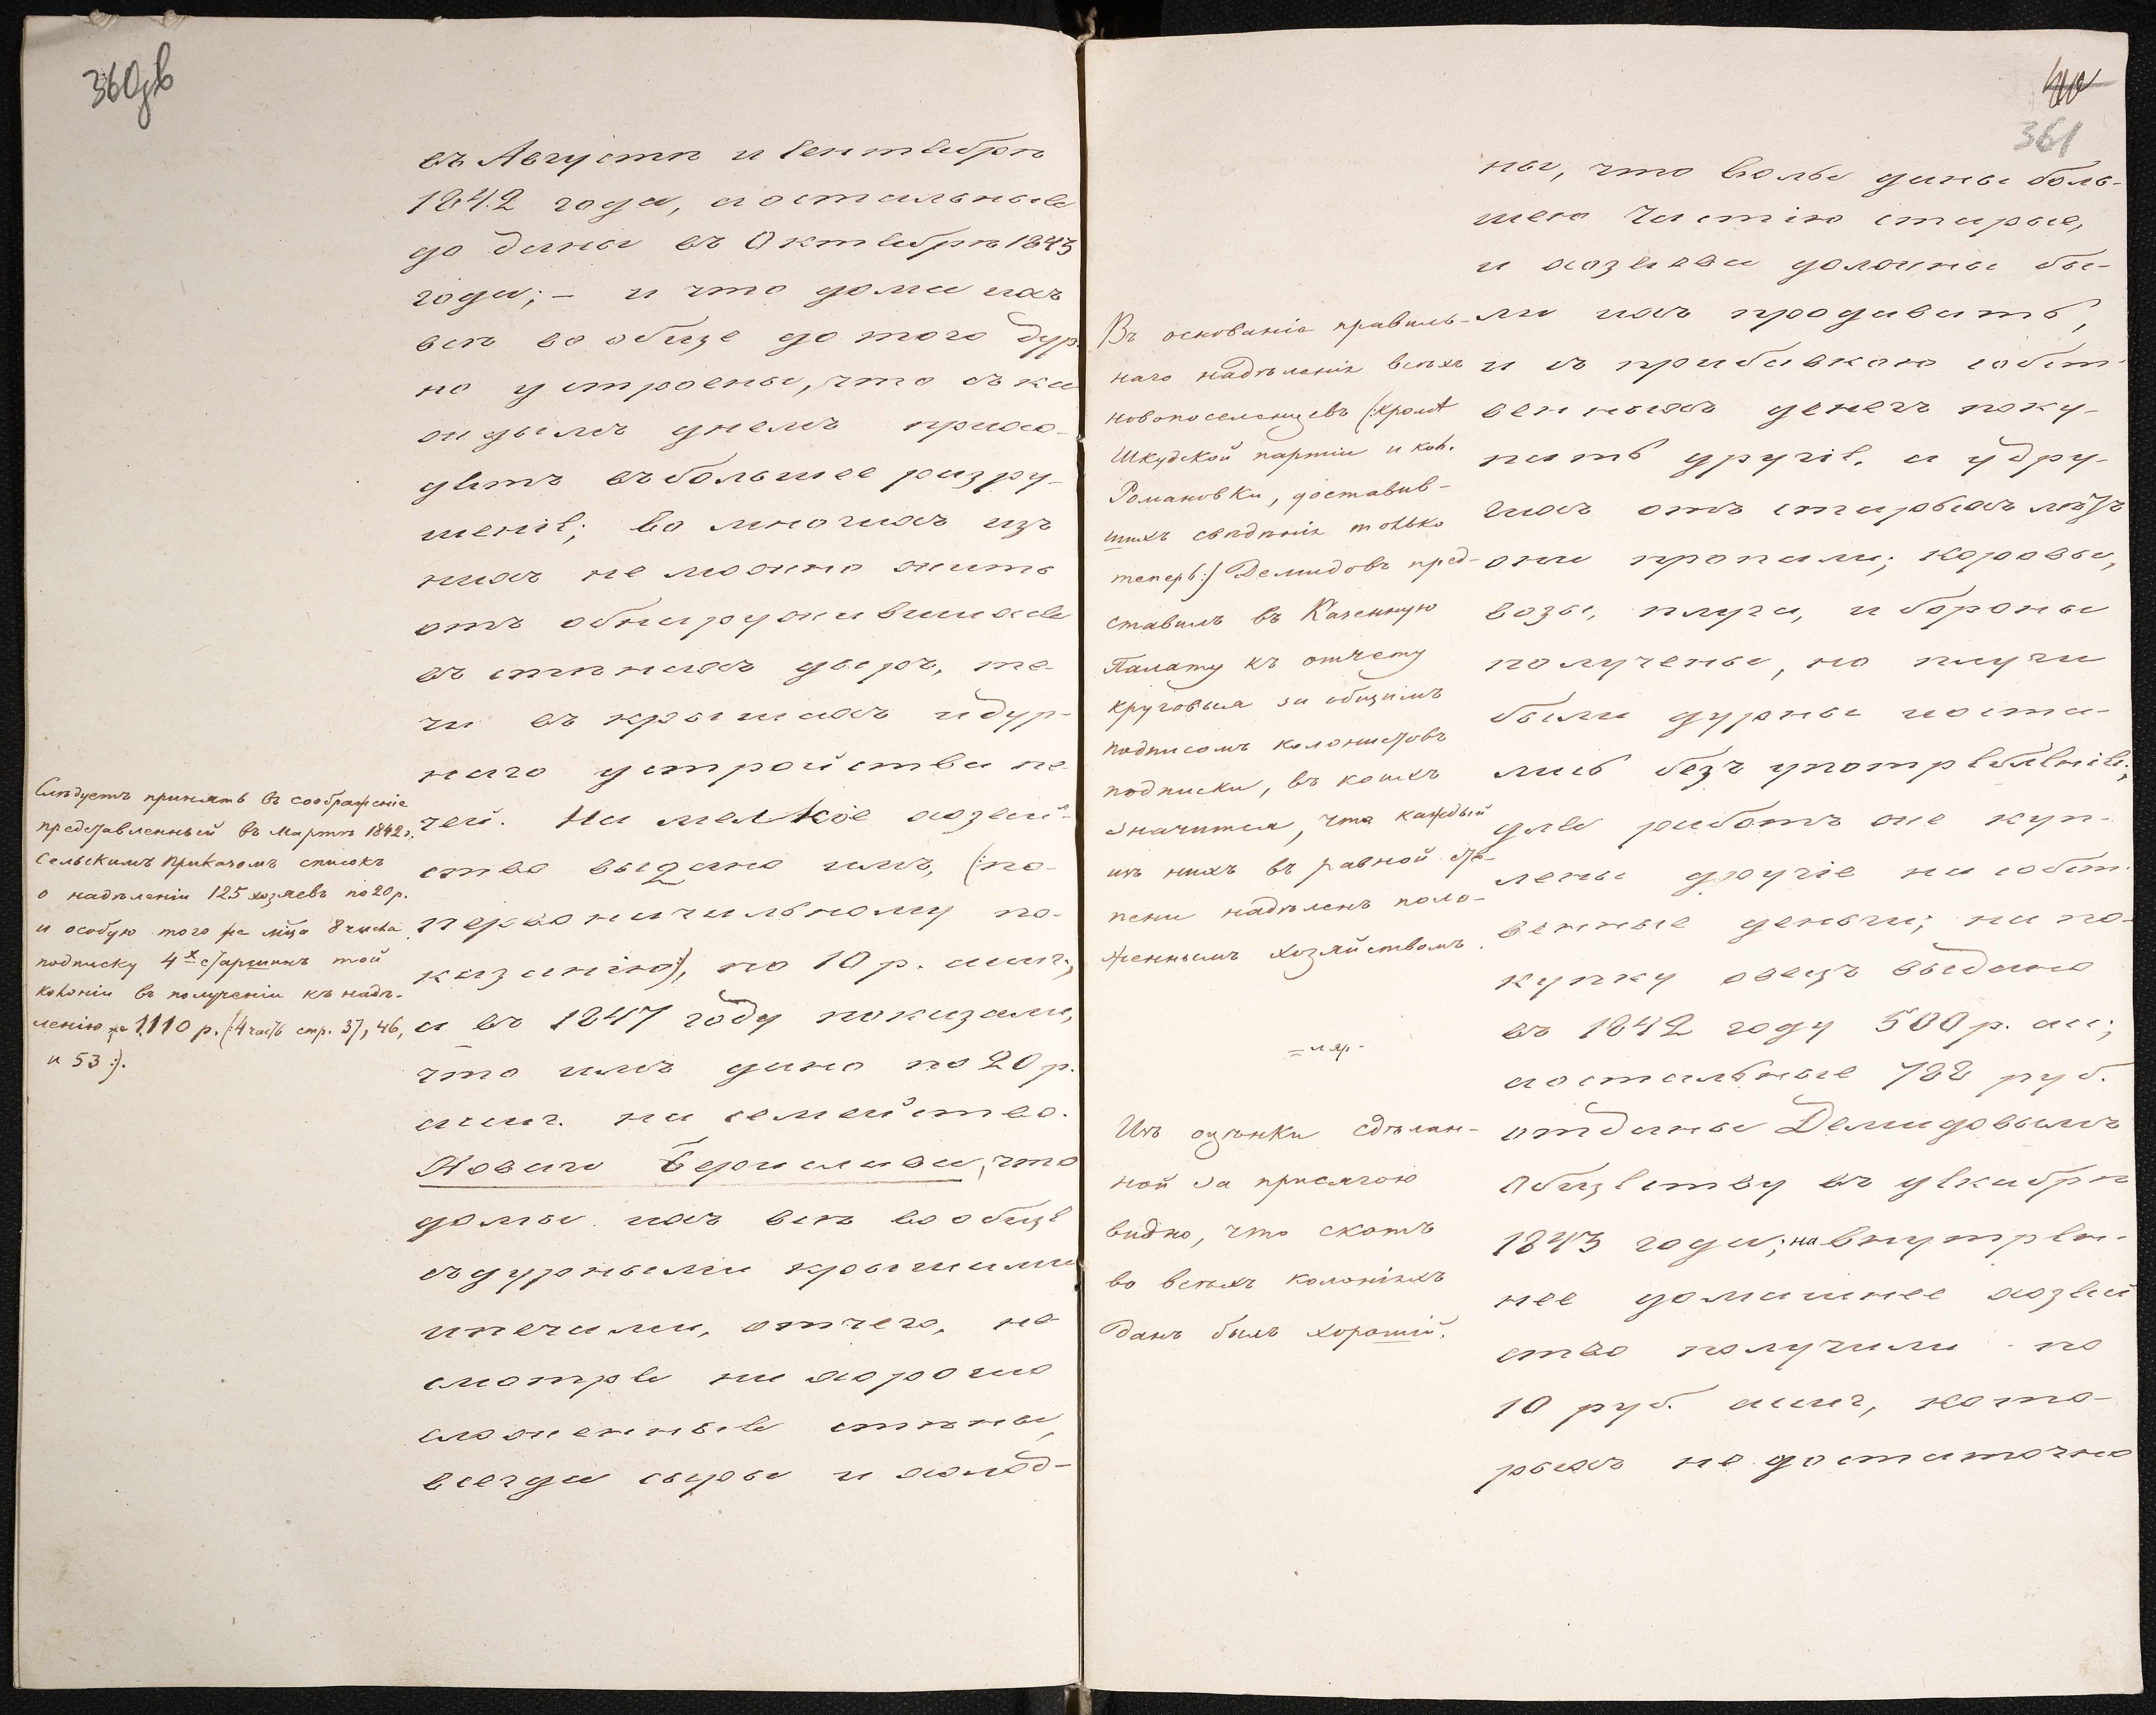 360 об
въ Августѣ и Сентябрѣ
1842 года, а остальныя
до дачи въ Октябрѣ 1843
года; – и что дома ихъ
всѣ вообще до того дур-
но устроены, что съ ка-
ждымъ днемъ прихо-
дятъ въ большее разру-
шеніе; во многихъ изъ
нихъ не можно жить
отъ обнаружившихся
въ стѣнахъ дыръ, те-
чи въ крышахъ и дур-
наго устройства пе-
чей. На мелкое хозяй-
ство выдано имъ, (:по-
первоначальному по-
казанію:), по 10 р. асиг.,
а въ 1847 году показали,
что имъ дано по 20 р.
асиг. на семейство.
Новаго Берислава, что
домы ихъ всѣ вообще
съ дурными крышами
и печами, отчего, не
смотря на хорошо
сложенныя стѣны,
всегда сыры и холод-
Слѣдуетъ принять въ соображеніе
представленный въ Мартѣ 1842 г.
Сельскимъ Приказомъ списокъ
о надѣленіи 125 хозяевъ по 20 р.
и особую того же м͠ца 8 числа
подписку 4х старшинъ той
колоніи въ полученіи къ надѣ-
ленію же 1,110 р. (:4 часть стр. 37, 46,
и 53:).
361
ны, что волы даны боль-
шею частію старые,
и хозяева должны бы-
ли ихъ продавать,
и съ прибавкою собст-
венныхъ денегъ поку-
пать другіе, а у дру-
гихъ отъ старыхъ лѣтъ
они пропали; коровы,
возы, плуги, и бороны
получены, но плуги
были дурны и оста-
лись безъ употребленія;
для работъ оне куп-
лены другіе на собст-
венные деньги; на по-
купку овецъ выдано
въ 1842 году 500 р. ас.;
а остальные 722 руб.
отданы Демидовымъ
Обществу въ декабрѣ
1843 года; на внутрен-
нее домашнее хозяй-
ство получили по
10 руб. асиг, кото-
рыхъ не достаточно
Въ основаніе правиль-
наго надѣленія всѣхъ
новопоселенцевъ (:кромѣ
Шкудской партіи и кол.
Романовки, доставив-
шихъ свѣдѣнія только
теперь:) Демидовъ пред-
ставилъ въ Казенную
Палату къ отчету
круговыя за общимъ
подписомъ колонистовъ
подписки, въ коихъ
значится, что каждый
изъ нихъ въ равной сте-
пени надѣленъ поло-
женнымъ хозяйствомъ.
Изъ оцѣнки сдѣлан-
ной за присягою
видно, что скотъ
во всѣхъ колоніяхъ
данъ былъ хорошій.